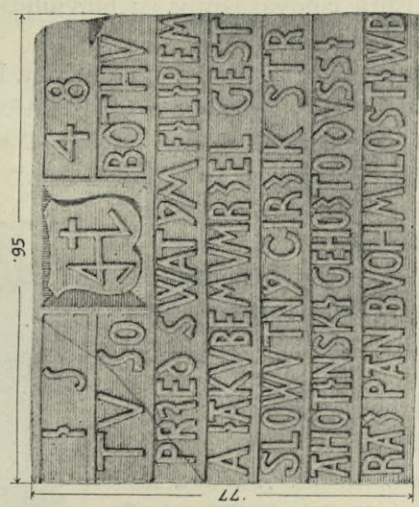 95
77
I S 48
TV SO BOTHV
PRZED SWATYM FILIPEM
A IAKVBEM VMRZEL GEST
SLOWVTNY CIRZIK STR
AHOTINSKI GEHOZTO DVSSI
RAZ PAN BVOH MILOSTIWB